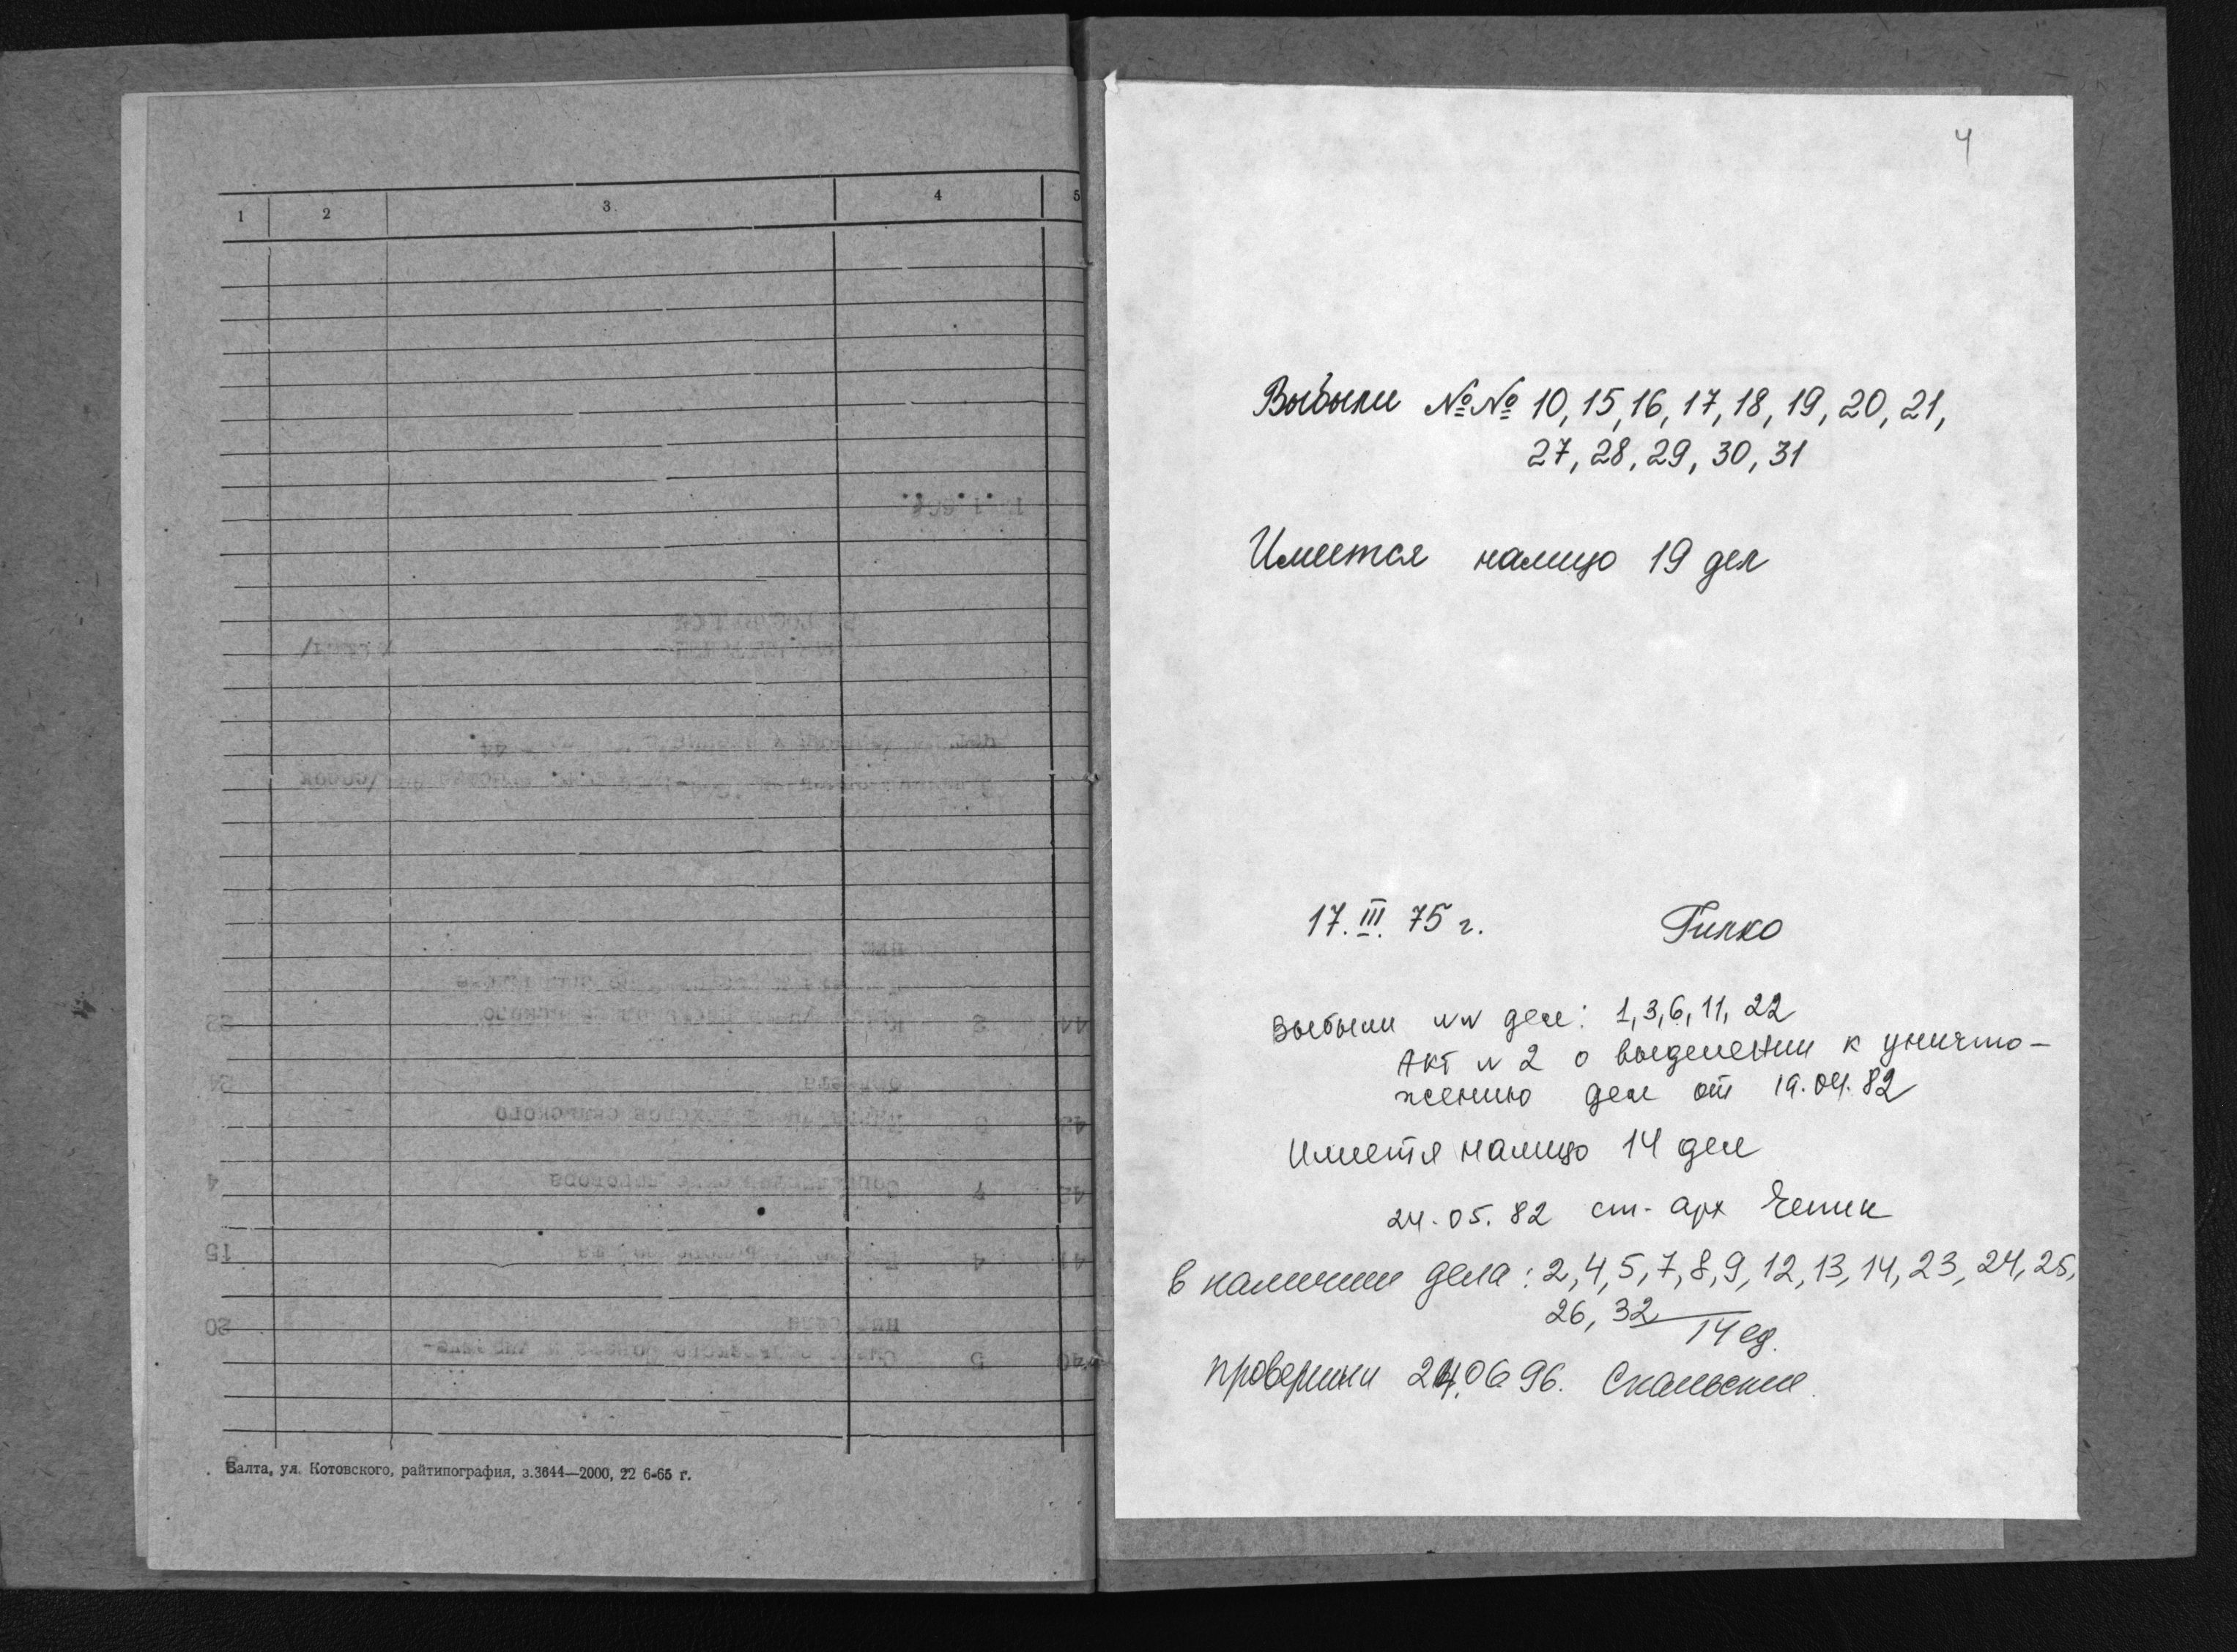 1 2 3 4 5
Балта, ул. Котовского, райтипография, з.3644—2000, 22 6-65 г.
4
Выбыли №№ 10, 15, 16, 17, 18, 19, 20, 21,
27, 28, 29, 30, 31
Имеется налицо 19 дел
17. III. 75 г. Гилко
Выбыли NN дел: 1, 3, 6, 11, 22
Акт N 2 о выделении к уничто-
жению дел от 19.04.82
Имеется налицо 14 дел
24.05.82 ст. арх Чепик
В наличии дела: 2, 4, 5, 7, 8, 9, 12, 13, 14, 23, 24, 25,
26, 32
14 ед.
проверили 24.06 96.